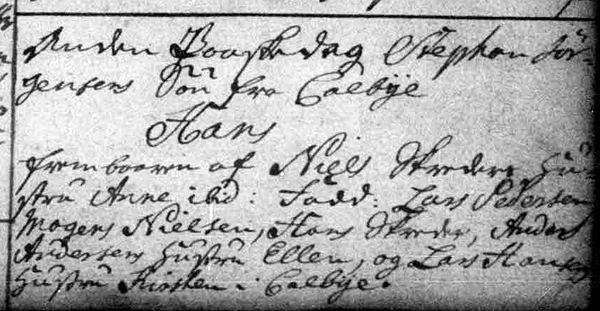 Anden Paaskedag Stephan Jör-
gensens Sön fra Calbÿe
Hans
fremboaren af Niels Skreders Hu-
stru Anne ibid: Fadd: Lars Pedersen
Mogens Nielsen, Hans Skreder, Anders
Andersens Hustru Ellen, og Lars Hansens
Hustru Kirsten i Calbÿe.